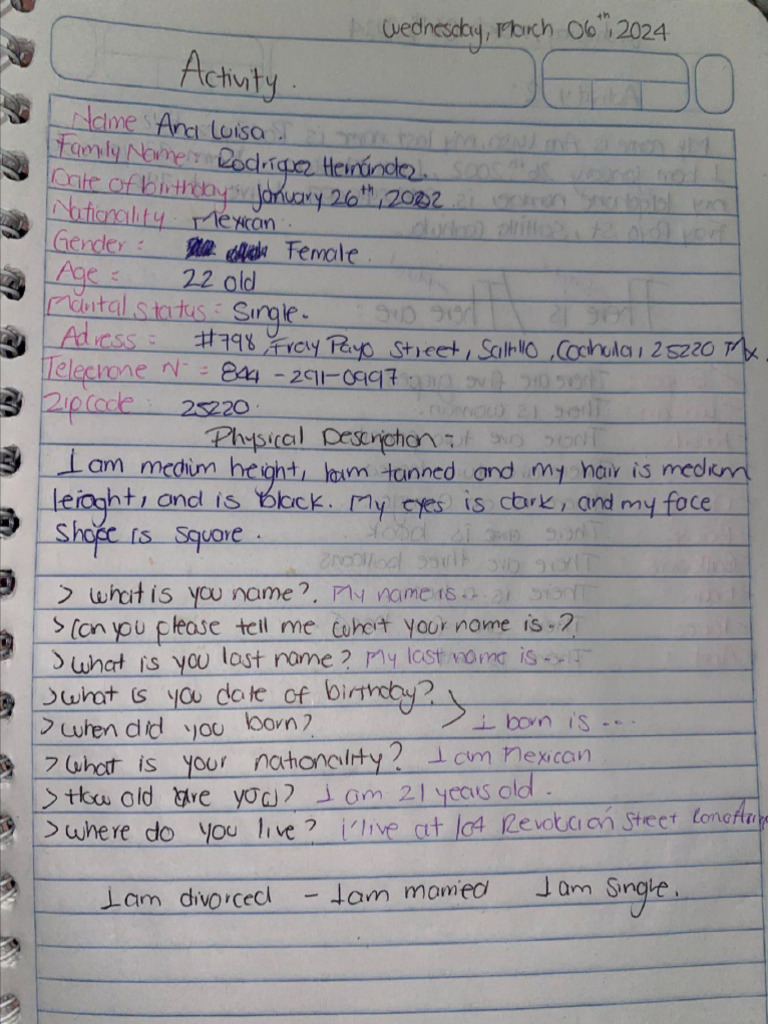 Wednesday, March 06th, 2024
Activity.
Name Ana Luisa.
Family Name: Rodríguez Hernández.
Date of birthday January 26th, 2002
Nationality Mexican.
Gender: Female.
Age = 22 old
Marital status: Single.
Adress: #798, Fray Payo Street, Saltillo, Coahuila, 25220 Mx.
Telephone N = 844-291-0997
Zip code: 25220.
Physical Description:
I am medium height, I am tanned and my hair is medium
leioght, and is black. My eyes is dark, and my face
shape is square.
> What is you name?. My name is...
> Can you please tell me what your name is..?
> What is you last name? My last name is...
> what is you date of birthday?
> when did you born? I born is ...
> What is your nationality? I am Mexican
> How old are you? I am 21 years old.
> where do you live? i'live at 104 Revolución Street
I am divorced - I am married I am single.